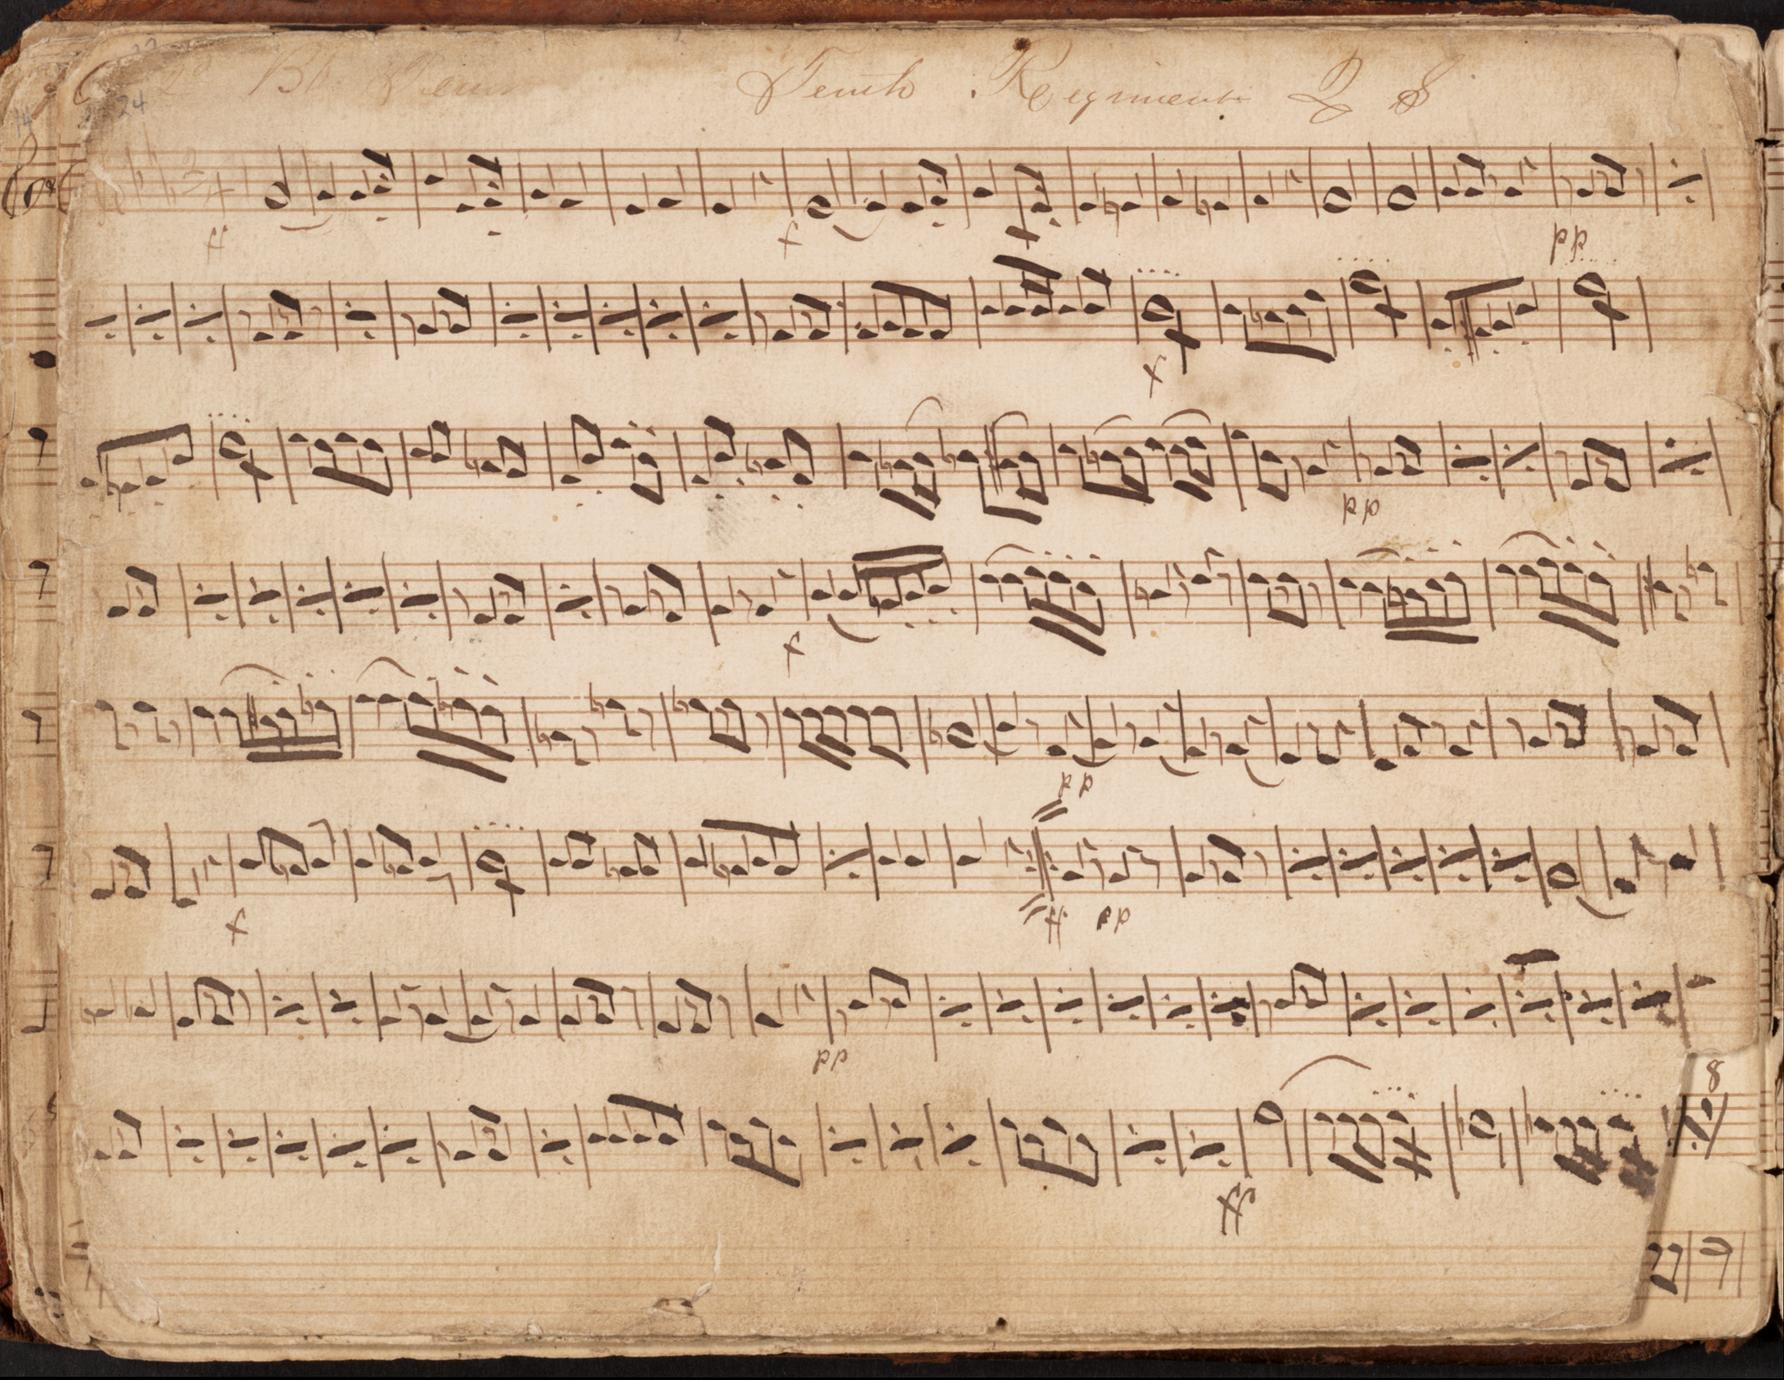 24
2d Bb Tenor Tenth Regiment Q S
ff f pp
f
pp
f
pp
f ff pp
pp
8
ff